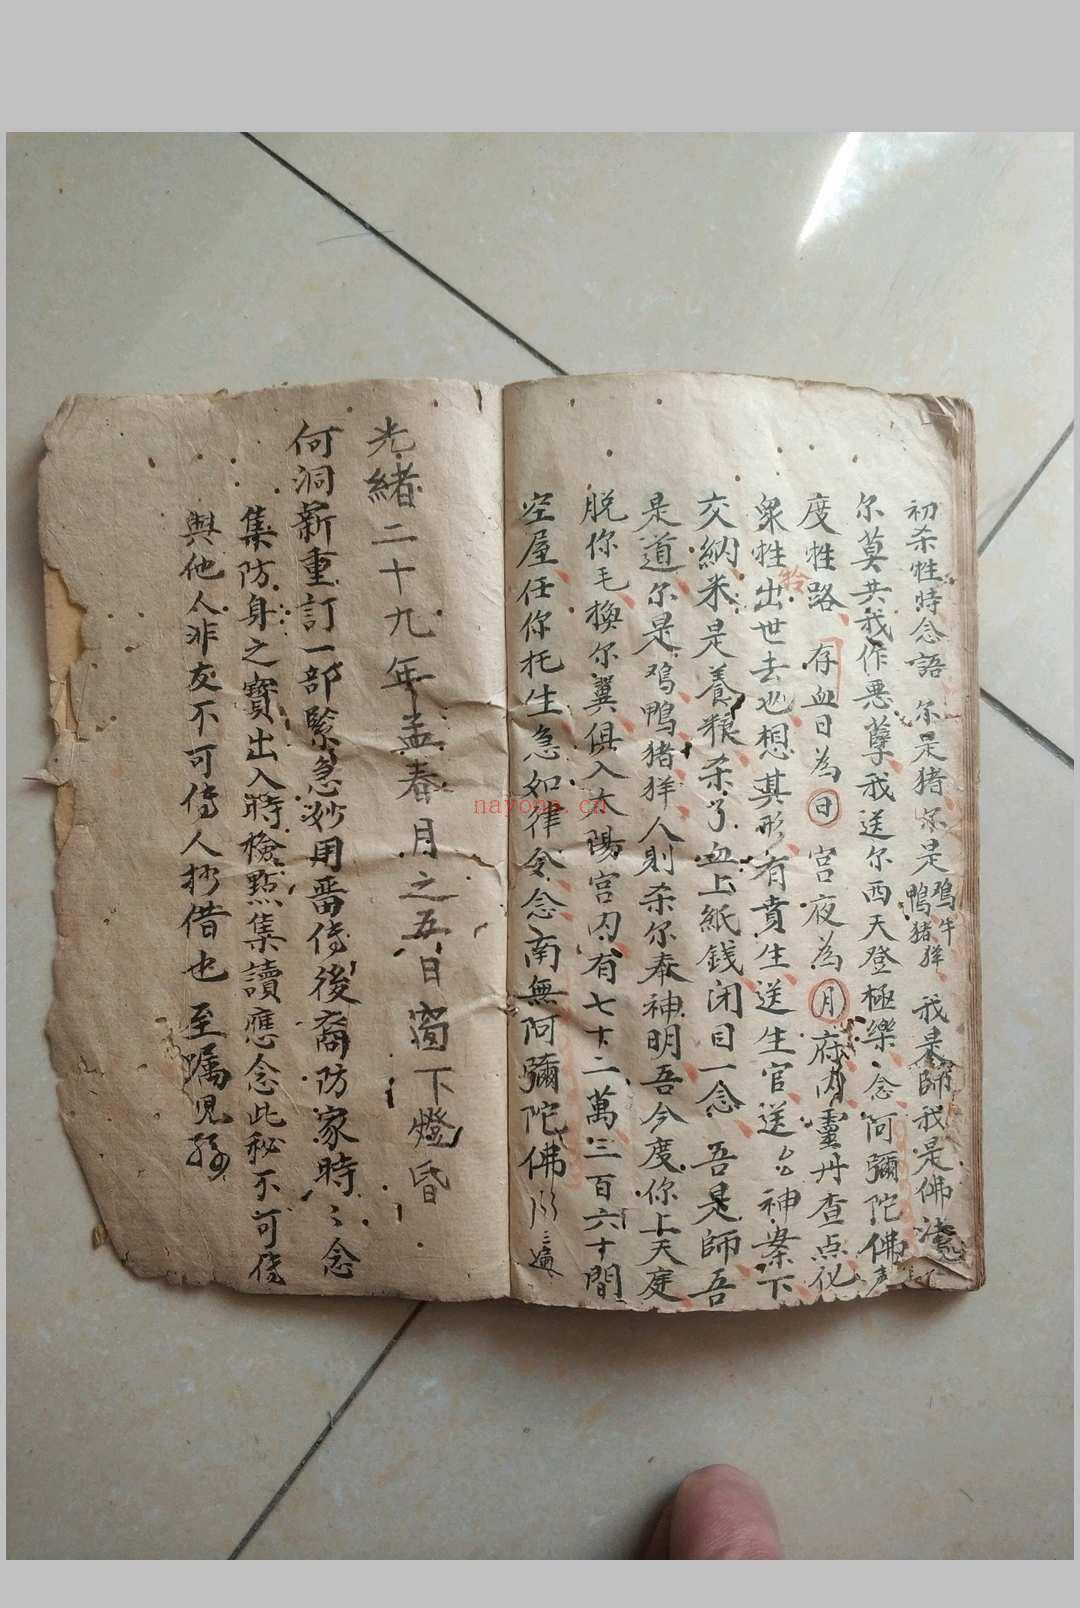 初杀牲時念語 尔是猪尔是鴨鸡猪牛羊 我是師我是佛
尔莫共我作悪孽我送尔西天登極樂念阿彌陀佛
度牲路 存血日為日宮夜為月府内靈丹查点化
衆牲出世去也想其形有賁生送生官送么神案下
交納米是養粮杀了血上紙錢闭目一念 吾是師吾
是道尔是鸡鴨猪羊人則杀尔奉神明吾今度你上天庭
脱你毛換尔翼俱入太陽宮内有七十二萬三百六十間
空屋任你托生急如律令念南無阿彌陀佛 三遍
光緒二十九年孟春月之五日窗下燈昏
何洞新重訂一部緊急妙用畨傳後裔防家時〻念
集防身之寶出入時檢點集讀應念此秘不可傳
與他人非友不可傳人抄借也 至嘱児孫
nayona.cn